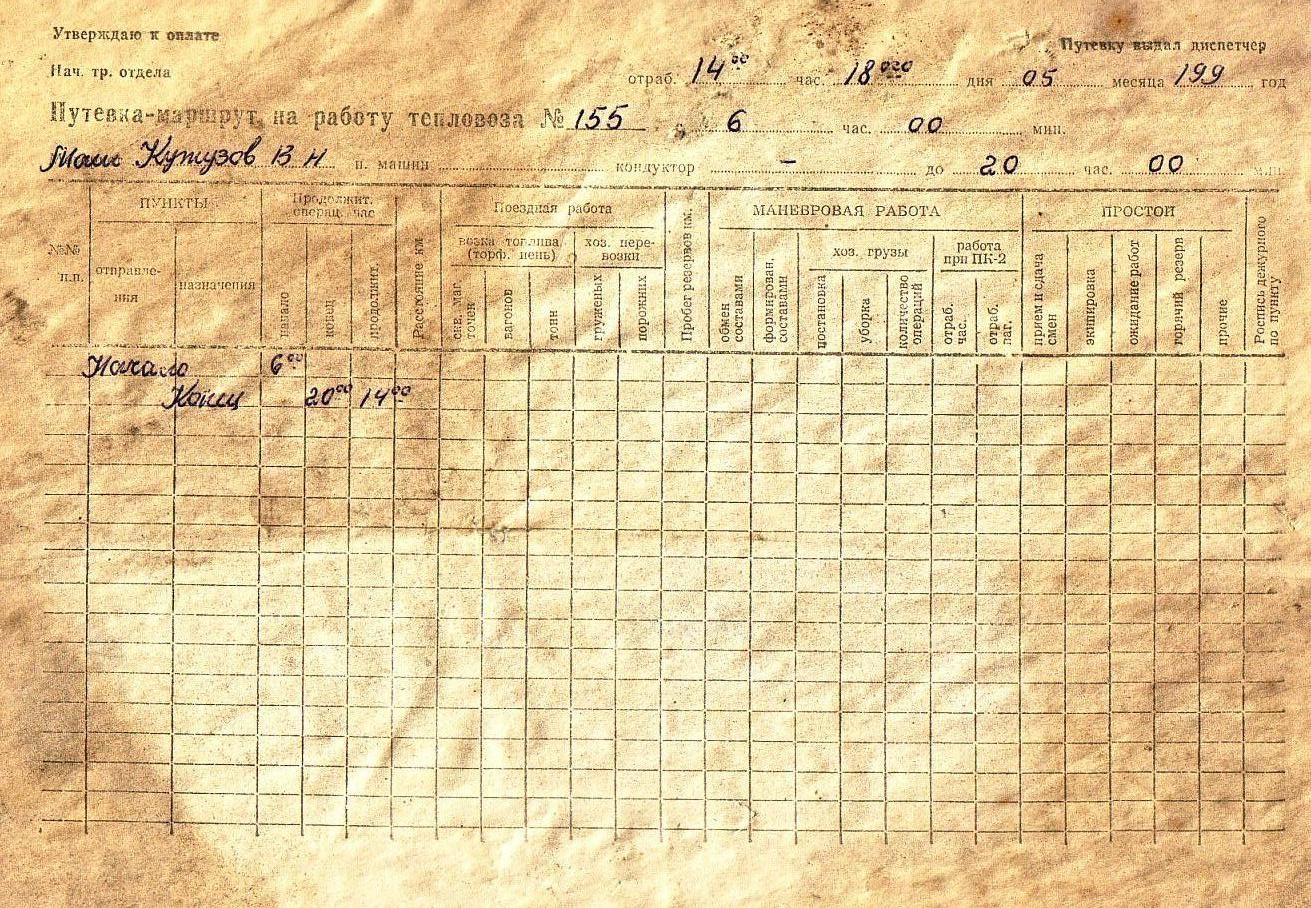 Утверждаю к оплате
Путевку выдал диспетчер
Нач. тр. отдела
отраб. 14⁰⁰ час. 18 дня 05 месяца 199 год
Путевка-маршрут на работу тепловоза № 155 с 6 час. 00 мин.
Маш Кутузов В Н п. машин кондуктор – до 20 час. 00
№№ п.п.
ПУНКТЫ
отправления
назначения
Продолжит. операц. час
начало
конец
продолжит.
Расстояние км
Поездная работа
возка топлива (торф. пень)
вагонов
тонн
хоз. пере-
возки
груженых
порожних
Пробег резервов км.
МАНЕВРОВАЯ РАБОТА
обмен составами
формирован. составами
хоз. грузы
постановка
уборка
количество операций
работа при ПК-2
отраб. час.
отраб. ваг.
ПРОСТОИ
прием и сдача смен
экипировка
ожидание работ
горячий резерв
прочие
Роспись дежурного по пункту
Начало 6⁰⁰
Конец 20⁰⁰ 14⁰⁰